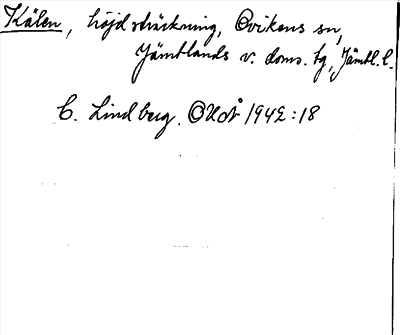 Kälen, höjdsträckning, Ovikens sn,
Jämtlands v. doms. tg, Jämtl. l.
C. Lindberg. OUÅ 1942:18